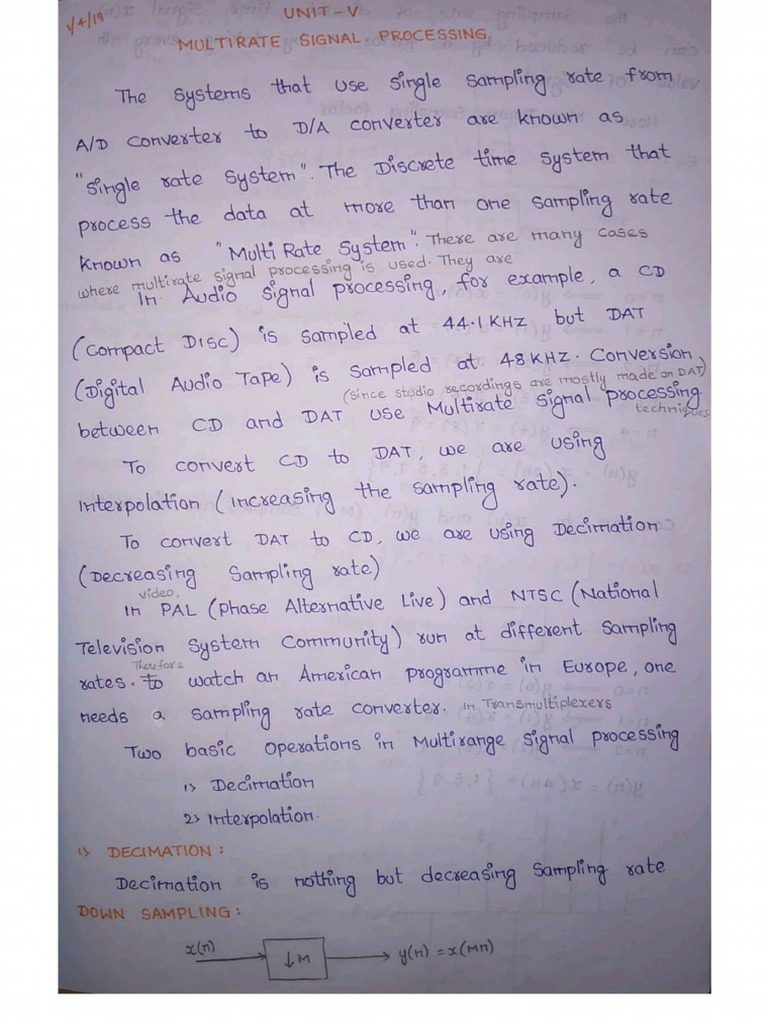 1/4/19
UNIT - V
MULTIRATE SIGNAL PROCESSING
The systems that use single sampling rate from
A/D converter to D/A converter are known as
"Single rate system". The Discrete time system that
process the data at more than one sampling rate
known as "Multi Rate System". There are many cases
where multirate signal processing is used. They are
In Audio signal processing, for example, a CD
(Compact Disc) is sampled at 44.1 KHz but DAT
(Digital Audio Tape) is sampled at 48 KHz. Conversion
(since studio recordings are mostly made on DAT)
between CD and DAT use Multirate signal processing
techniques
To convert CD to DAT, we are using
Interpolation (increasing the sampling rate).
To convert DAT to CD, we are using Decimation
(Decreasing Sampling rate)
video,
In PAL (Phase Alternative Live) and NTSC (National
Television System Community) run at different sampling
Therefore
rates. To watch an American programme in Europe, one
needs a sampling rate converter. in Transmultiplexers
Two basic operations in Multirange signal processing
1> Decimation
2> Interpolation.
1> DECIMATION :
Decimation is nothing but decreasing sampling rate
DOWN SAMPLING :
x(n) ↓M y(n) = x(Mn)